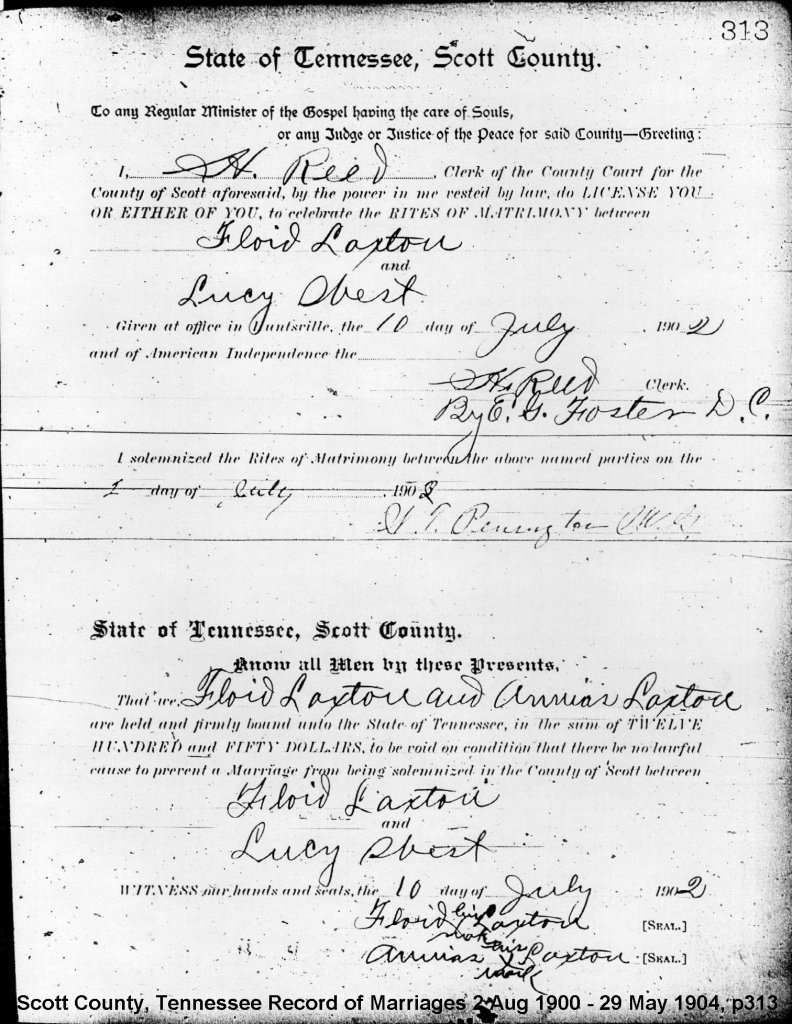 313
State of Tennessee, Scott County.
To any Regular Minister of the Gospel having the care of Souls,
or any Judge or Justice of the Peace for said County—Greeting:
I, H. Reed, Clerk of the County Court for the
County of Scott aforesaid, by the power in me vested by law, do LICENSE YOU
OR EITHER OF YOU, to celebrate the RITES OF MATRIMONY between
Floid Laxton
and
Lucy West
Given at office in Huntsville, the 10 day of July 1902
and of American Independence the
H. Reed Clerk.
By E. G. Foster D. C.
I solemnized the Rites of Matrimony between the above named parties on the
day of July, 1902
Pennington
State of Tennessee, Scott County.
Know all Men by these Presents,
That we, Floid Laxton and Annias Laxton
are held and firmly bound unto the State of Tennessee, in the sum of TWELVE
HUNDRED and FIFTY DOLLARS, to be void on condition that there be no lawful
cause to prevent a Marriage from being solemnized in the County of Scott between
Floid Laxton
and
Lucy West
WITNESS our hands and seals, the 10 day of July 1902
his
Floid Laxton [SEAL.]
mark his
Annias X Laxton [SEAL.]
mark
Scott County, Tennessee Record of Marriages 2 Aug 1900 - 29 May 1904, p313